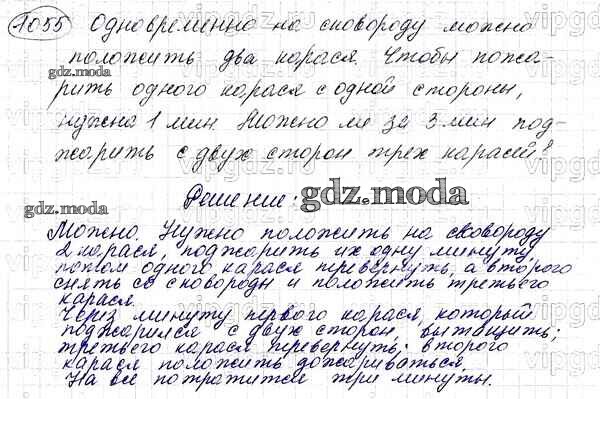 1055 Одновременно на сковороду можно
положить два карася. Чтобы пожа-
рить одного карася с одной стороны,
нужна 1 мин. Можно ли за 3 мин под-
жарить с двух сторон трех карасей?
gdz.moda
gdz.moda
Решение: gdz.moda
Можно. Нужно положить на сковороду
2 карася, поджарить их одну минуту,
потом одного карася перевернуть, а второго
снять со сковороды и положить третьего
карася.
Через минуту первого карася, который
поджарился с двух сторон, вытащить;
третьего карася перевернуть; второго
карася положить дожариваться.
На всё потратится три минуты.